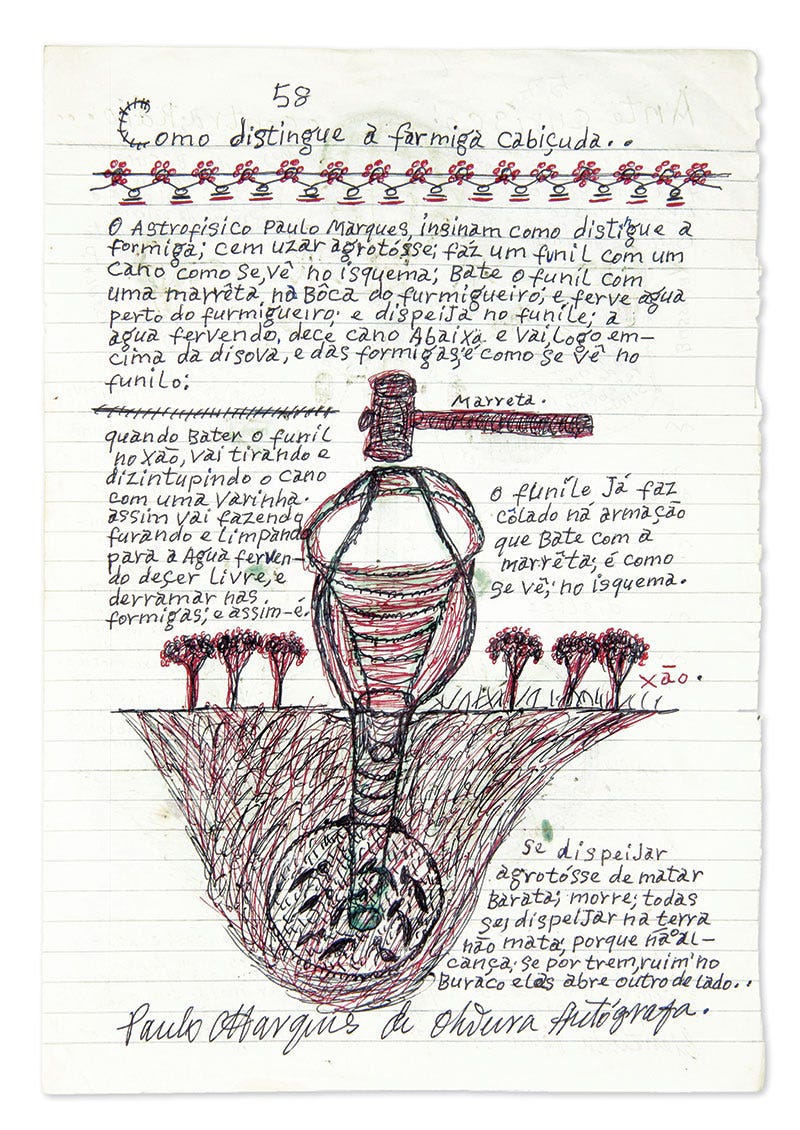 58
Como distingue a farmiga cabiçuda..
O Astrofisico Paulo Marques, insinam como distihgue a
formiga; cem uzar agrotósse; faz um funil com um
cano como se,vê no isquema; Bate o funil com
uma marrêta, na Bôca do furmigueiro; e, ferve agua
perto do furmigueiro; e dispeija no funile; a
agua fervendo, dece cano Abaixa e vai,logo em-
cima da disova, e das formigas,e como se vê no
funilo;
Marreta.
quando Bater o funil
no xão, vai tirando e
dizintupindo o cano
com uma varinha.
assim vai fazendo
furando e limpando
para a Agua ferven-
do deçer Livre, e
derramar nas,
formigas; e assim-é.
o funile Já faz
côlado ná armação
que Bate com a
marrêta; é como
se vê; no isquema.
xão.
se dispeijar
agrotósse de matar
Barata; morre; todas
se; dispeijar na terra
não mata; porque não al-
cança; se por trem,ruim'no
Buraco elas abre outro de lado..
Paulo Marques de Oliveira Autógrafa.